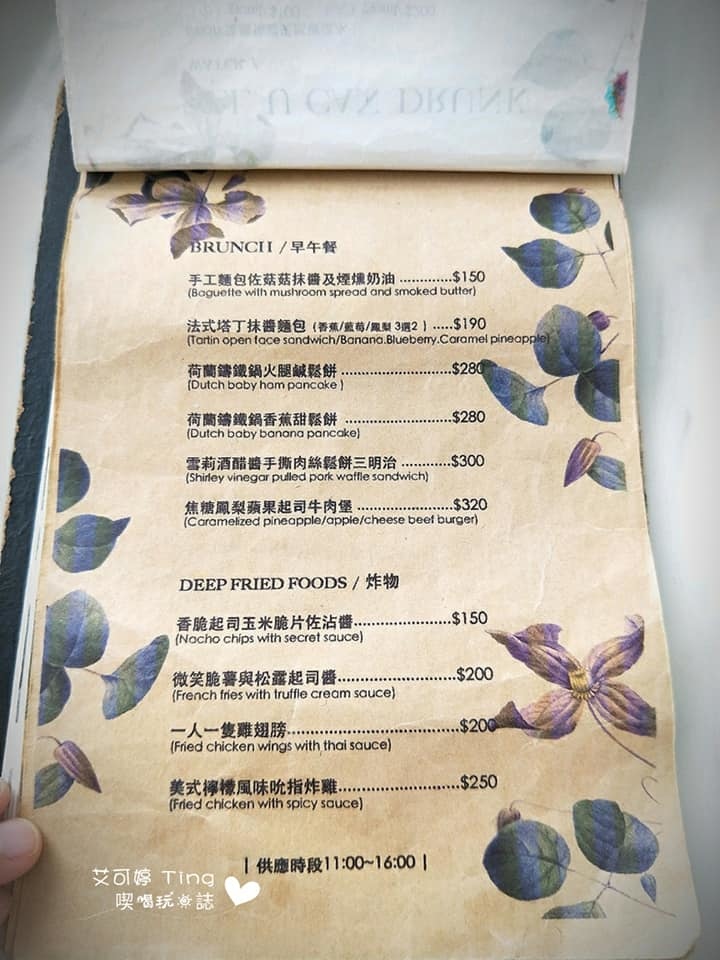 BRUNCH / 早午餐
手工麵包佐菇菇抹醬及煙燻奶油 .............$150
(Baguette with mushroom spread and smoked butter)
法式塔丁抹醬麵包 (香蕉/藍莓/鳳梨 3選2 ) .....$190
(Tartin open face sandwich/Banana.Blueberry.Caramel pineapple)
荷蘭鑄鐵鍋火腿鹹鬆餅 ...........................$280
(Dutch baby ham pancake )
荷蘭鑄鐵鍋香蕉甜鬆餅 ..........................$280
(Dutch baby banana pancake)
雪莉酒醋醬手撕肉絲鬆餅三明治 ............$300
(Shirley vinegar pulled pork waffle sandwich)
焦糖鳳梨蘋果起司牛肉堡 .......................$320
(Caramelized pineapple/apple/cheese beef burger)
DEEP FRIED FOODS / 炸物
香脆起司玉米脆片佐沾醬.......................$150
(Nacho chips with secret sauce)
微笑脆薯與松露起司醬..........................$200
(French fries with truffle cream sauce)
一人一隻雞翅膀.....................................$200
(Fried chicken wings with thai sauce)
美式檸檬風味吮指炸雞..........................$250
(Fried chicken with spicy sauce)
| 供應時段11:00~16:00 |
艾可婷 Ting
喫喝玩樂誌